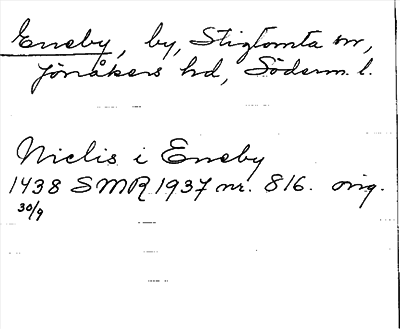 Eneby, by, Stigtomta sn,
Jönåkers hd, Söderm. l.
Niclis i Eneby
1438 SMR 1937 nr. 816. orig.
30/9